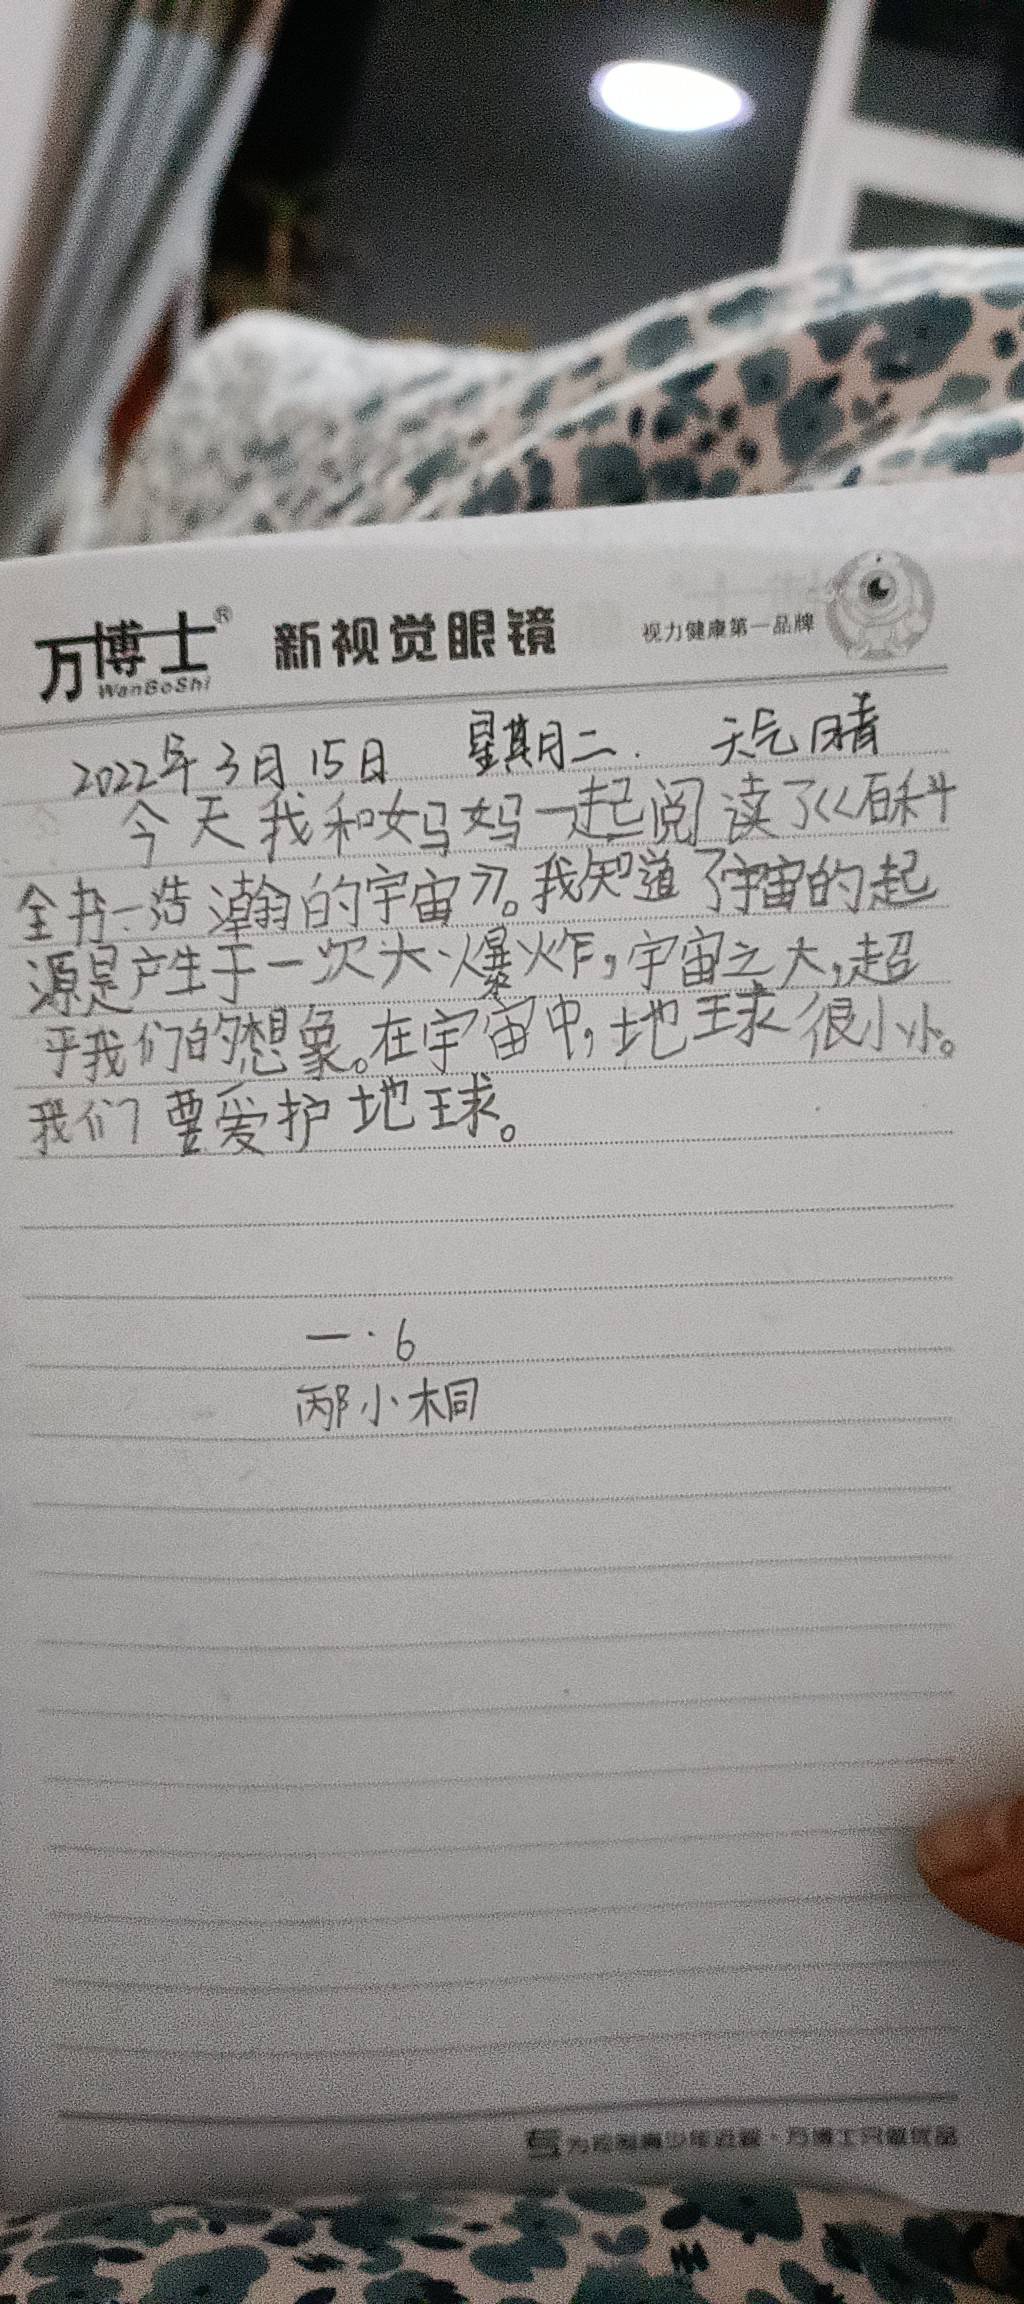 万博士® 新视觉眼镜 视力健康第一品牌
WanBoShi
2022年3月15日 星期二. 天气晴
今天我和妈妈一起阅读了《百科
全书—浩瀚的宇宙》。我知道了宇宙的起
源是产生于一次大爆炸,宇宙之大,超
乎我们的想象。在宇宙中,地球很小小。
我们要爱护地球。
一·6
邴小桐
青少年近视·万博士只做优品